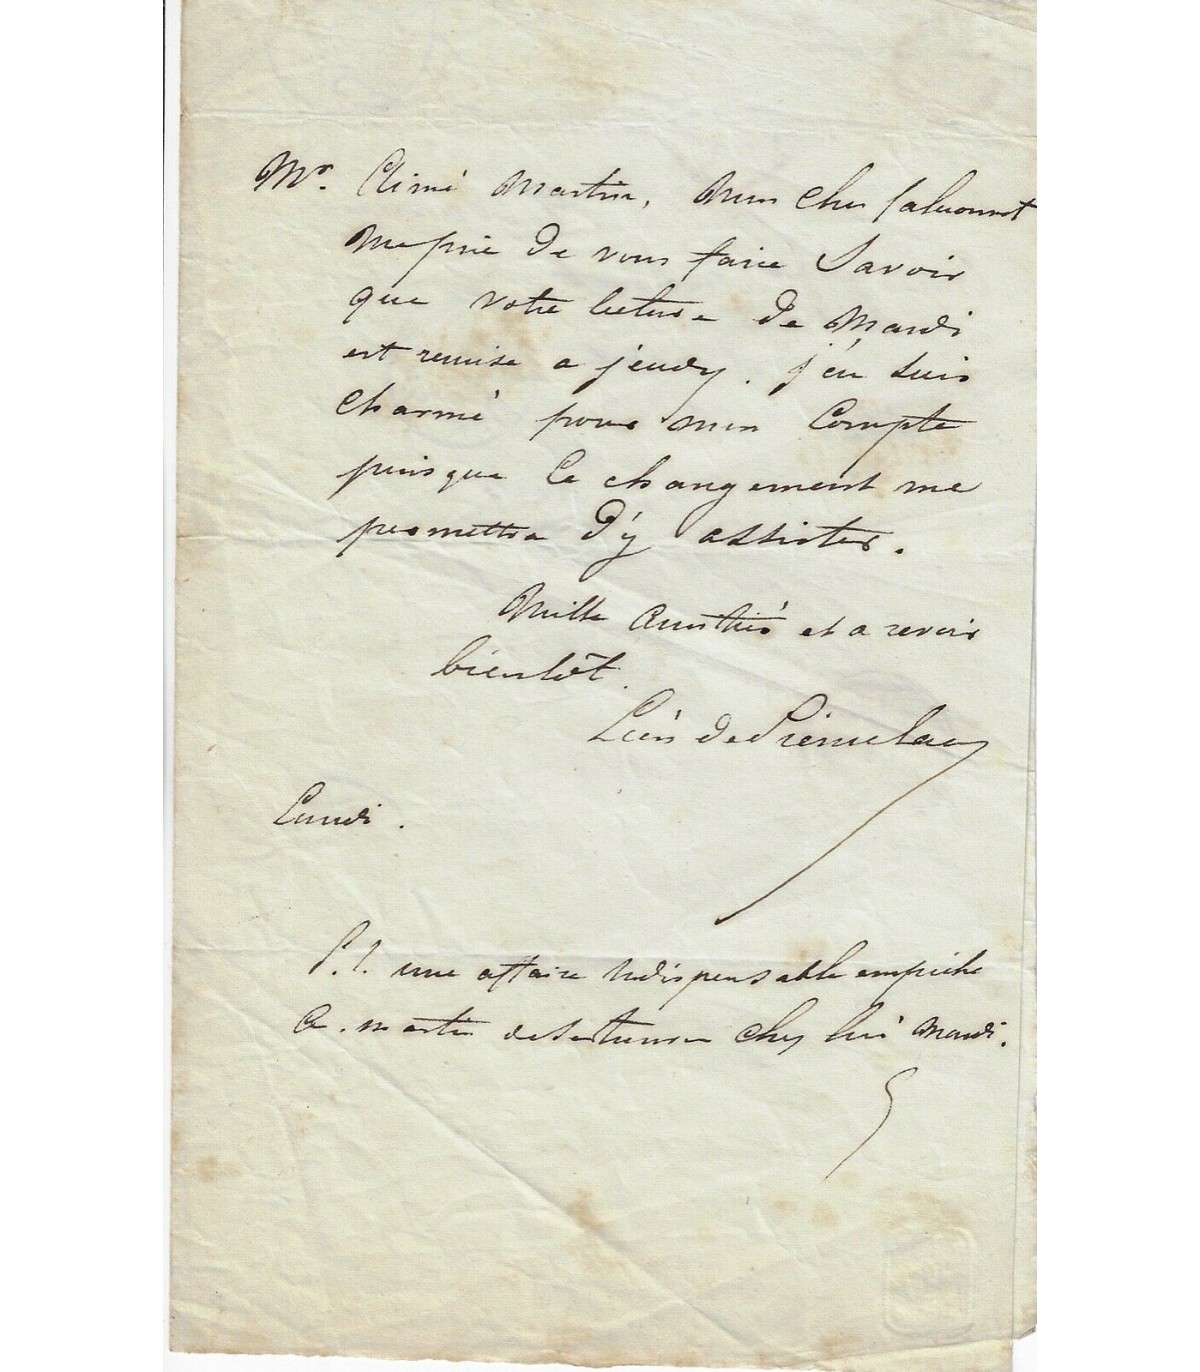 Mr. Aimé Martin, mon cher falconnet
me prie de vous faire savoir
que votre lecture de Mardi
est remise a jeudy. j'en suis
charmé pour mon Compte
puisque Ce changement me
permettra d'y assister.
Mille amitiés et a revoir
bientôt.
Léon de
Lundi.
P. S. une affaire indispensable empêche
a. martin de se trouver chez lui Mardi.